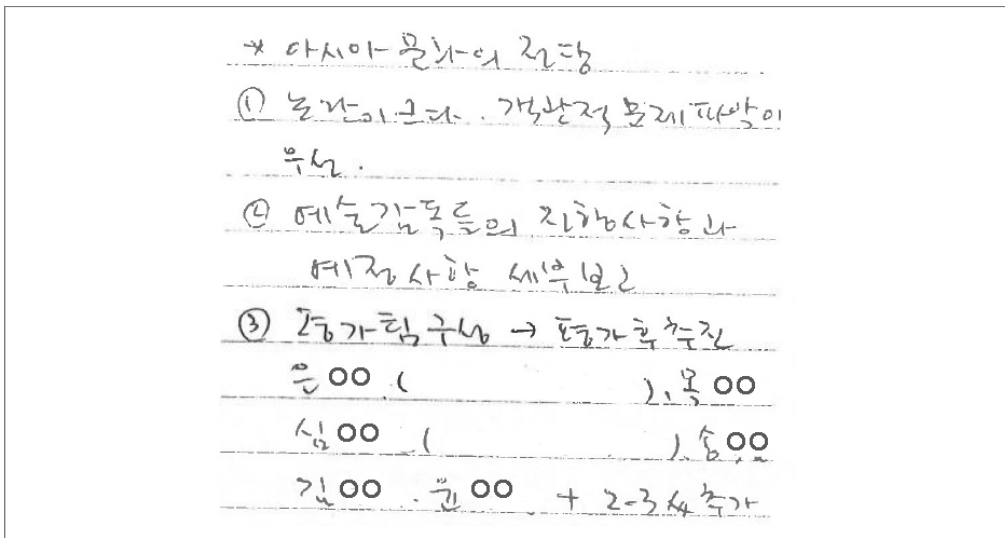 * 아시아 문화의 전당
① 논란이 크다. 객관적 문제파악이
우선.
② 예술감독들의 진행사항과
예정사항 세부보고
③ 평가팀 구성 → 평가 후 추진
은○○ ( ), 목○○
심○○ ( ), 송○○
김○○, 윤○○ + 2-3人 추가